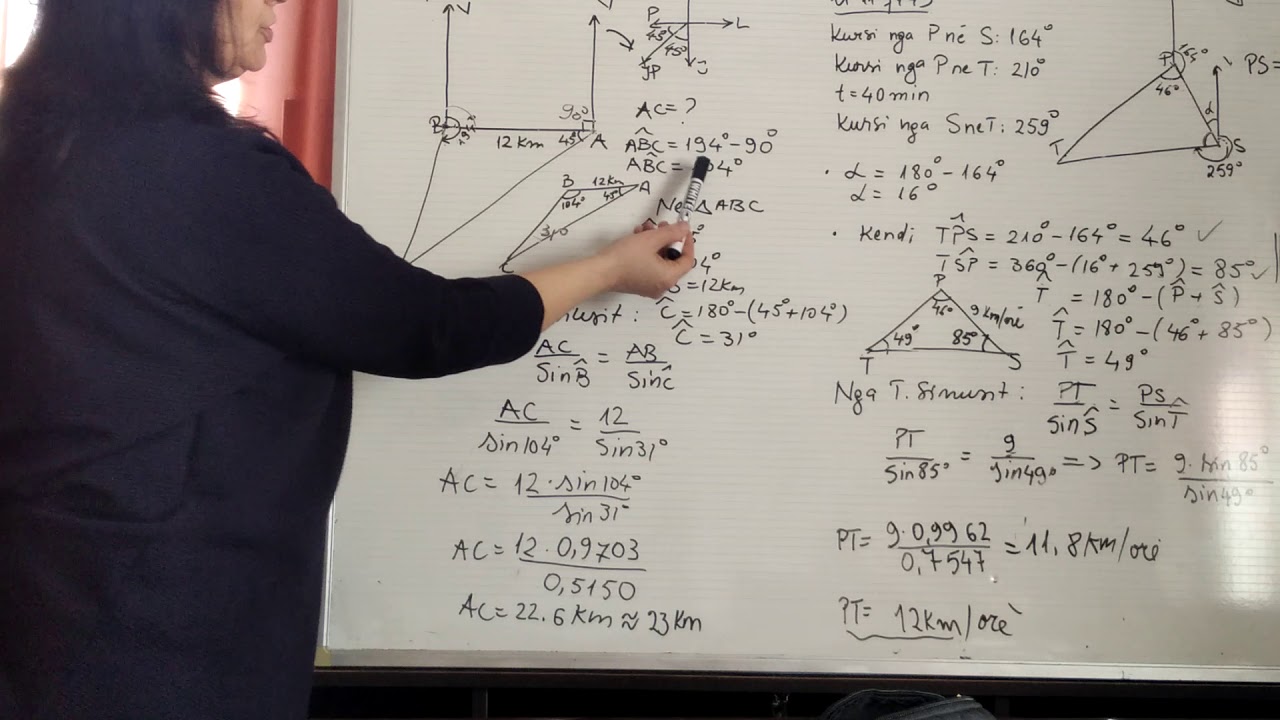 V
P
L
45°
45°
JP
J
B
12 Km
90°
45°
A
AC = ?
ABC = 194° - 90°
ABC = 104°
B 12Km A
104° 45°
31°
C
Nga △ ABC
= 12Km
Ĉ = 180° - (45° + 104°)
Ĉ = 31°
AC/Sin B̂ = AB/Sin Ĉ
AC/sin104° = 12/Sin31°
AC = 12 · sin104°/sin 31°
AC = 12 · 0,9703/0,5150
AC = 22.6 Km ≈ 23 Km
Kursi nga P në S: 164°
Kursi nga P ne T: 210°
t = 40 min
Kursi nga S ne T: 259°
· α = 180° - 164°
α = 16°
P
46°
α
PS =
T
S
259°
· Kendi TP̂S = 210° - 164° = 46° ✓
TŜP = 360° - (16° + 259°) = 85° ✓
T̂ = 180° - (P̂ + Ŝ)
T̂ = 180° - (46° + 85°)
T̂ = 49°
P
46°
9 Km/orë
49° 85°
T S
Nga T. Sinusit : PT/Sin Ŝ = PS/Sin T̂
PT/Sin85° = 9/sin49° => PT = 9 · sin 85°/sin49°
PT = 9 · 0,9962/0,7547 = 11,8 Km/orë
PT = 12 Km/orë